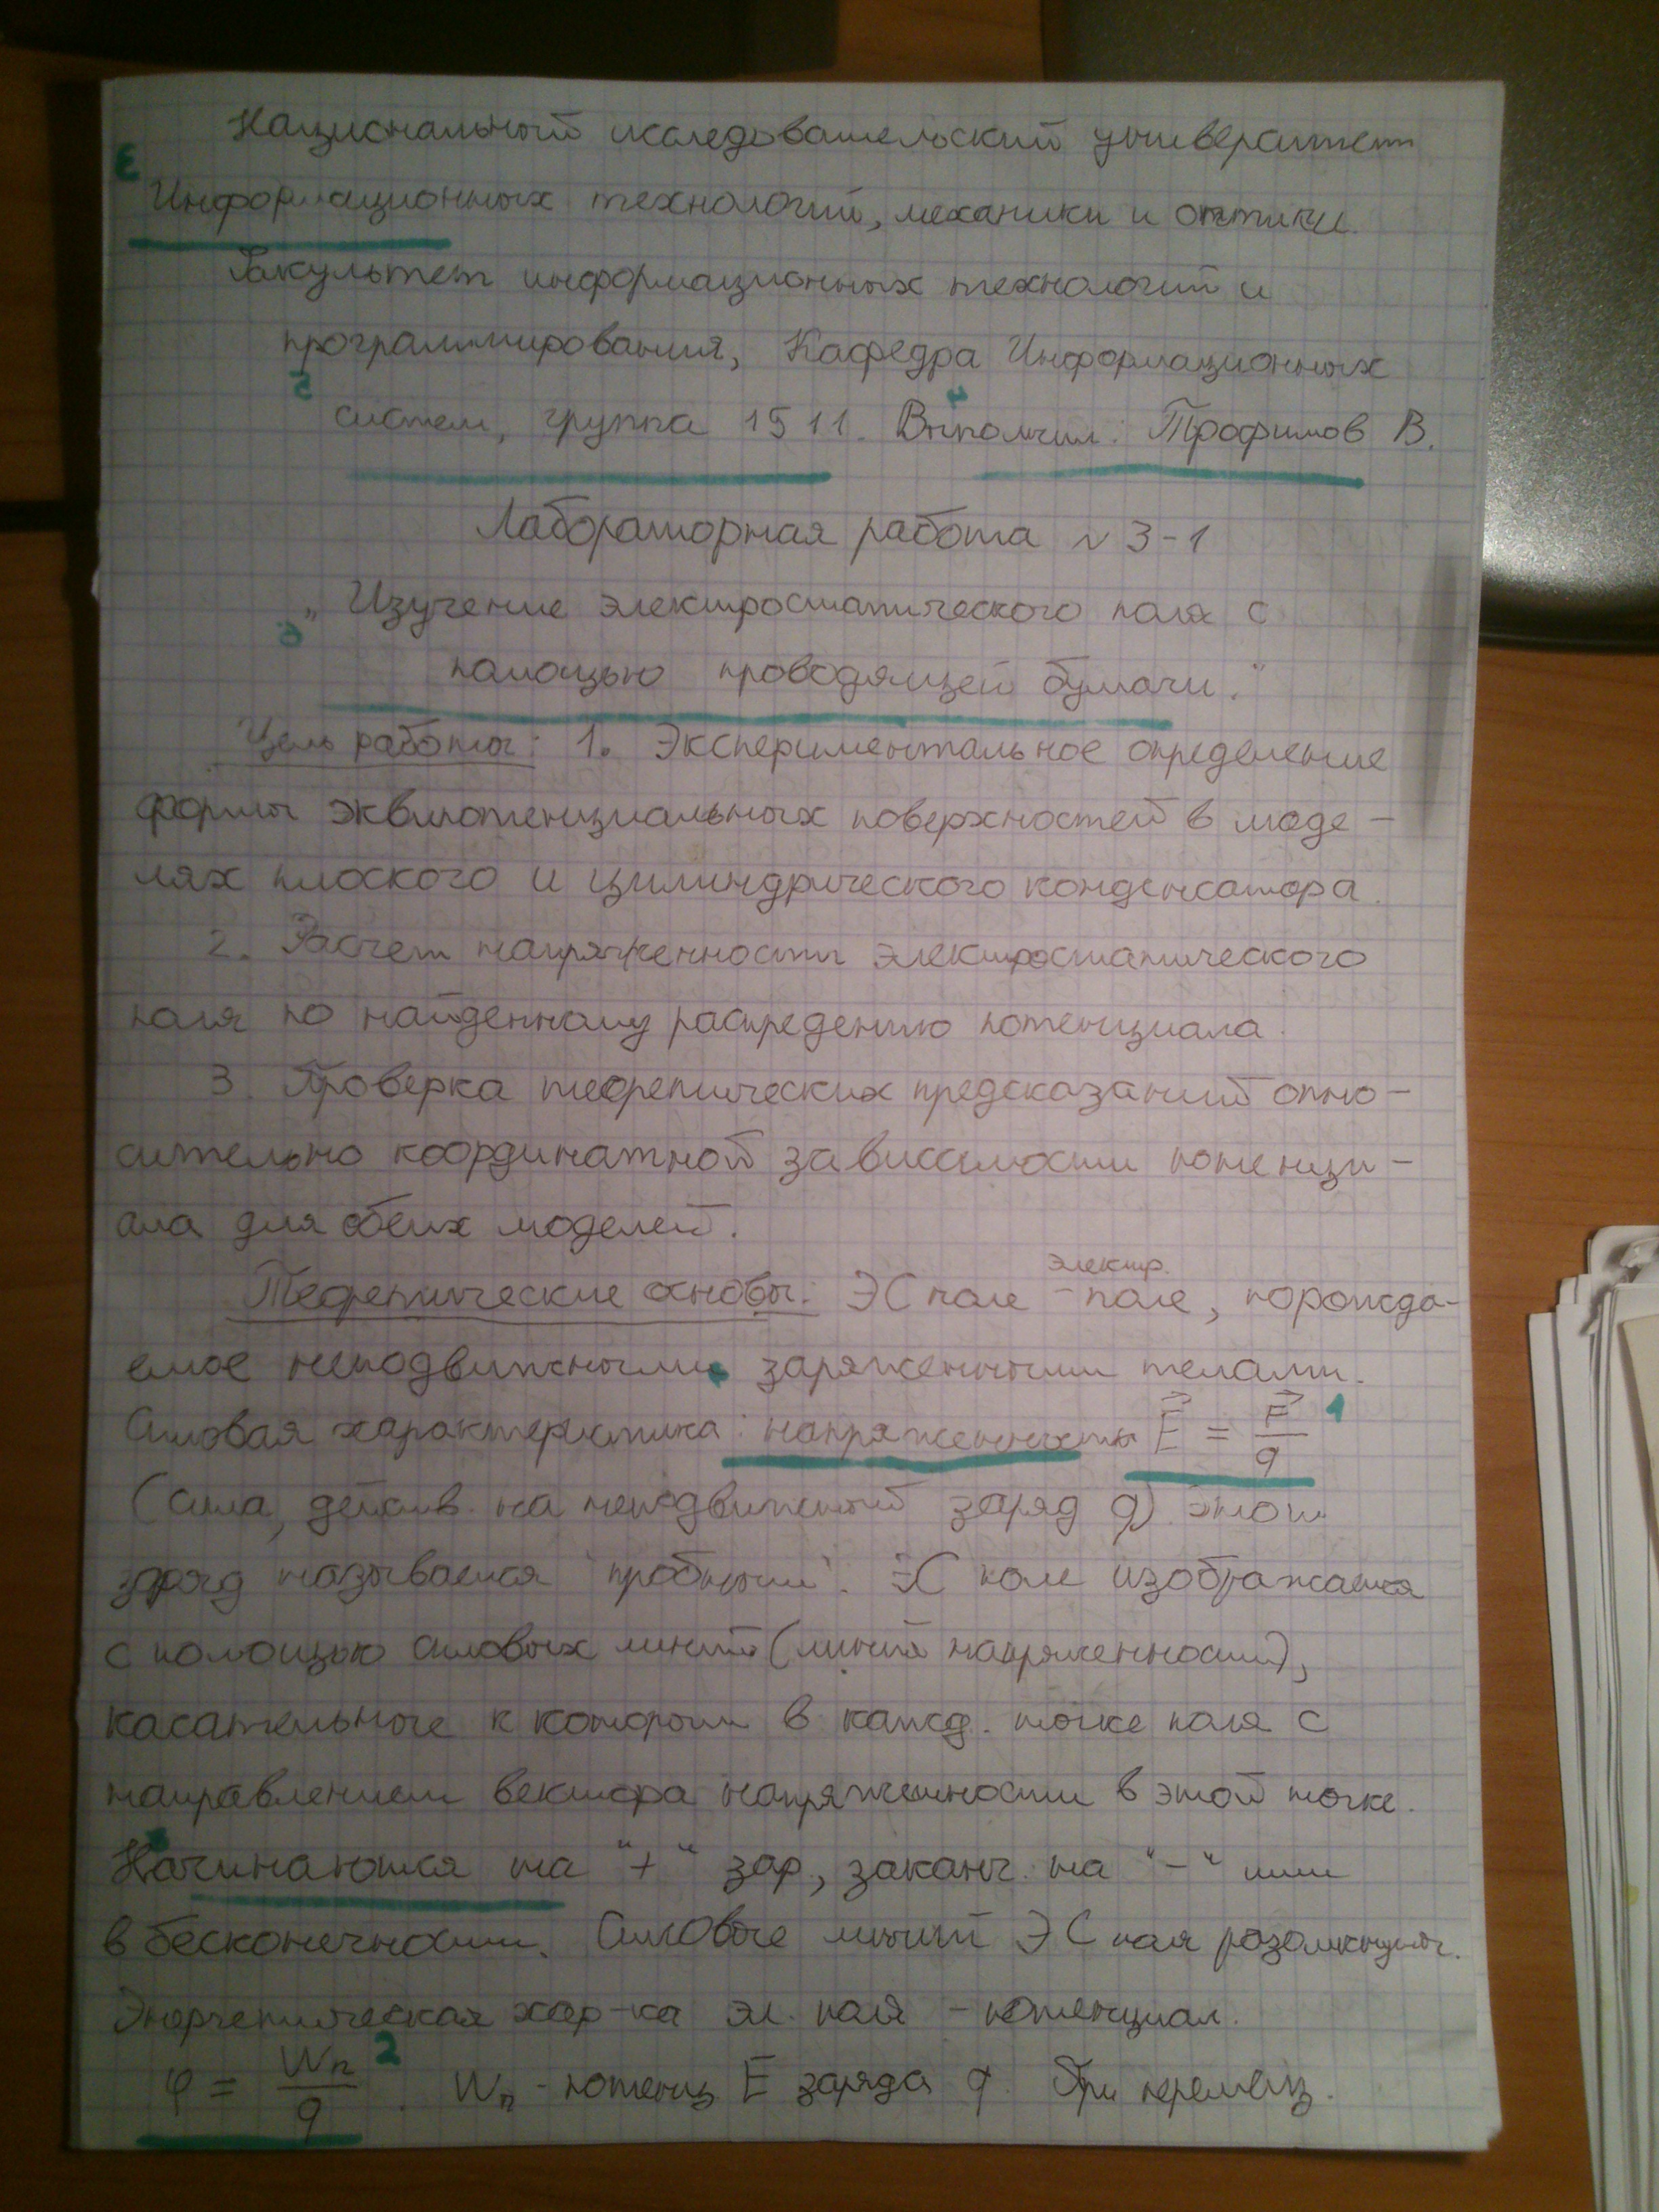 Национальный исследовательский университет
3
Информационных технологий, механики и оптики.
Факультет информационных технологий и
программирования, Кафедра Информационных
5 4
систем, группа 1511. Выполнил: Трофимов В.
Лабораторная работа № 3-1
„Изучение электростатического поля с
6
помощью проводящей бумаги."
Цель работы: 1. Экспериментальное определение
формы эквипотенциальных поверхностей в моде-
лях плоского и цилиндрического конденсатора.
2. Расчет напряженности электростатического
поля по найденному распредению потенциала.
3. Проверка теоретических предсказаний отно-
сительно координатной зависимости потенци-
ала для обеих моделей.
электр.
Теоретические основы: ЭС поле - поле, порожда-
емое неподвижными заряженными телами.
Силовая характеристика: напряженность E = F/q 1
(сила, действ. на неподвижный заряд q) этот
заряд называется "пробным". ЭС поле изображается
с помощью силовых линий (линий напряженности),
касательные к которым в кажд. точке поля с
направлением вектора напряженности в этой точке.
Начинаются на "+" зар, заканч. на "-" или
в бесконечности. Силовые линии ЭС поля разомкнуты.
Энергетическая хар-ка эл. поля - потенциал.
φ = Wп/q 2. Wп - потенц. E заряда q. При перемещ.